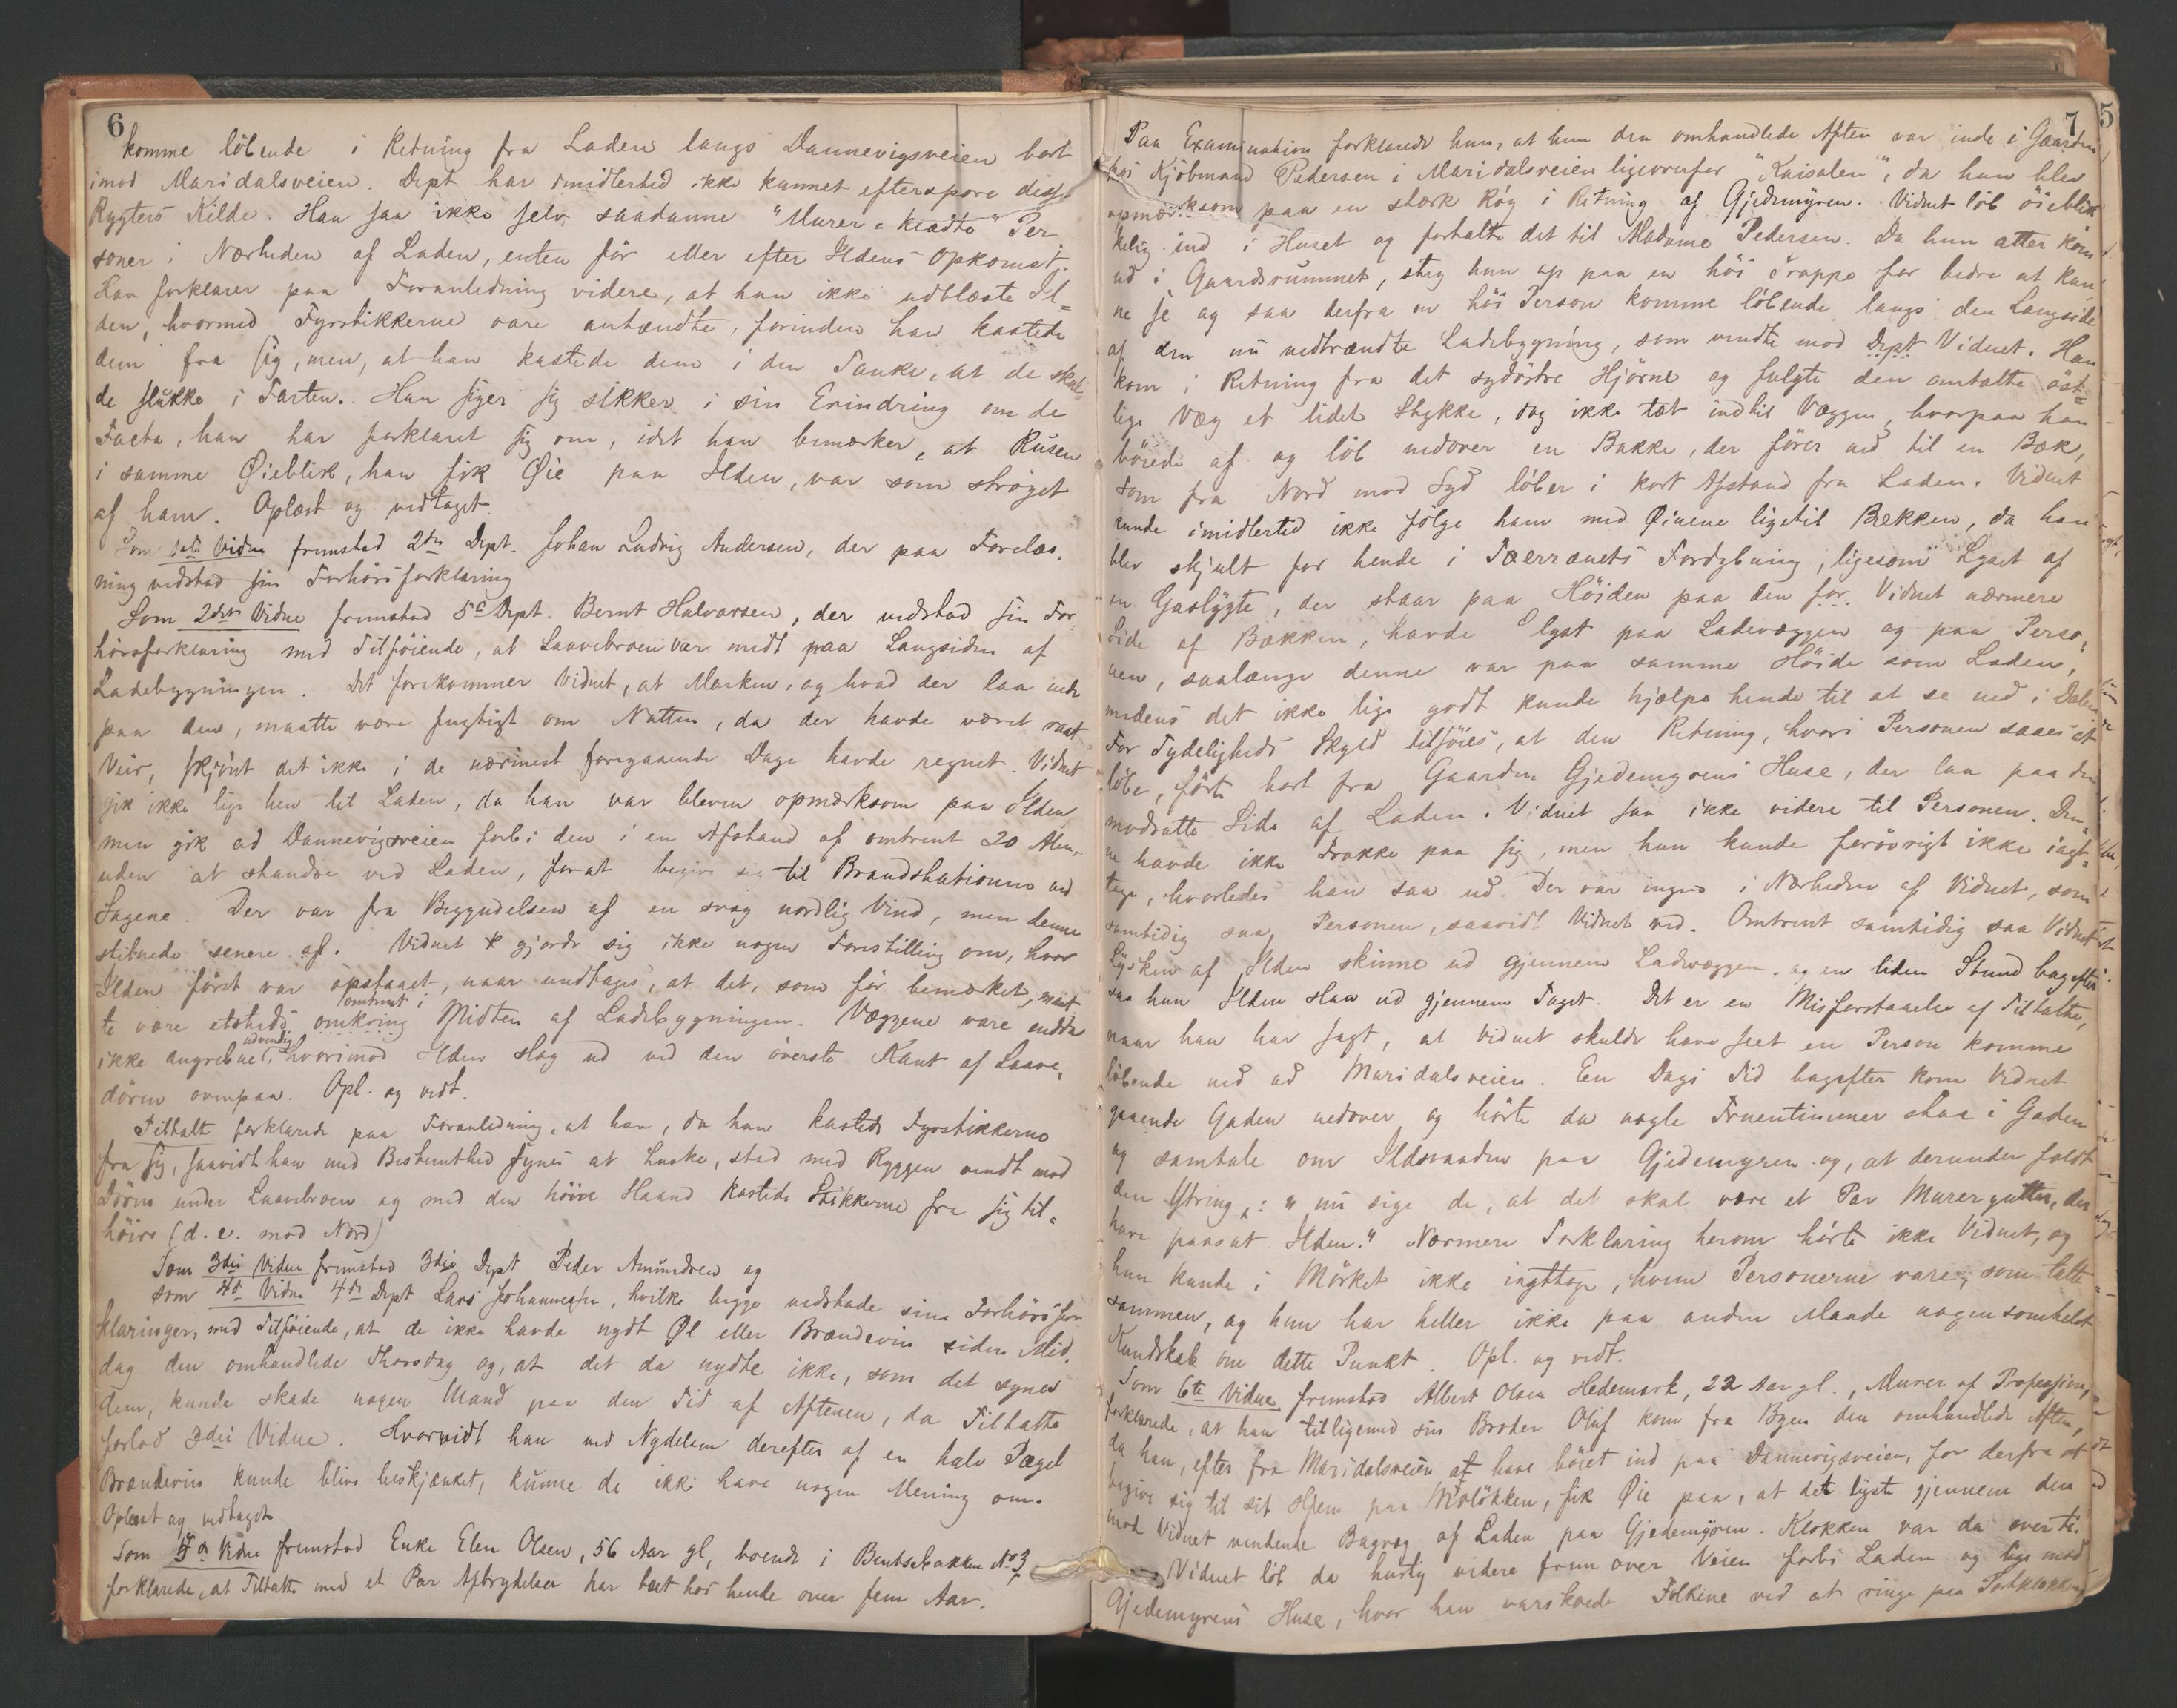 6
komme löbende i Retning fra Laden langs Dannevigsveien bort
imod Maridalsveien. Dept har imidlertid ikke kunnet efterspore dette
Rygtes Kilde. Han saa ikke selv saadanne "Murer=klædte" Per
soner i Nærheden af Laden, enten för eller efter Ildens Opkomst.
Han forklarer paa Foranledning videre, at han ikke udblæste Il=
den, hvormed Fyrstikkerne vare antændte, forinden han kastede
dem fra sig, men, at han kastede dem i den Tanke, at de skul=
de slukke i Farten. Han siger sig sikker i sin Erindring om de
Facta, han har forklaret sig om, idet han bemærker, at Rusen
i samme Øieblik, han fik Øie paa Ilden, var som ströget
af ham. Oplæst og vedtaget.
Som 1ste Vidne fremstod 2den Dept. Johan Ludvig Andersen, der paa Forelæs-
ning vedstod sin Forhörsforklaring
Som 2det Vidne fremstod 5te Dept. Bernt Halvorsen, der vedstod sin For-
hörsforklaring med Tilföiende, at Laavebroen var midt paa Langsiden af
Ladebygningen. Det forekommer Vidnet, at Marken, og hvad der laa inde
paa den, maatte være fugtigt om Natten, da der havde været raat
Veir, skjönt det ikke i de nærmest foregaaende Dage havde regnet. Vidnet
gik ikke lige hen til Laden, da han var bleven opmærksom paa Ilden,
men gik ad Dannevigsveien forbi den i en Afstand af omtrent 20 Alen,
uden at standse ved Laden, for at begive sig til Brandstationen ved
Sagene. Der var fra Begyndelsen af en svag nordlig Vind, men denne
stilnede senere af. Vidnet gjorde sig ikke nogen Forestilling om, hvor
Ilden först var opstaaet, naar undtages, at det, som för bemærket, maat
te være etsteds omtrent i omkring Midten af Ladebygningen. Væggene vare endda
ikke angrebne udvendig, hvorimod Ilden slog ud ved den överste Kant af Laave-
dören ovenpaa. Opl. og vedt.
Tiltalte forklarede paa Foranledning, at han, da han kastede Fyrstikkerne
fra sig, saavidt han med Bestemthed synes at huske, stod med Ryggen vendt mod
Dören under Laavebroen og med den höire Haand kastede Stikkerne fra sig til=
höire (d. e. mod Nord)
Som 3die Vidne fremstod 3die Dept Peder Amundsen og
som 4de Vidne 4de Dept Lars Johannessen, hvilke begge vedstode sine Forhörsfor
klaringer, med Tilföiende, at de ikke havde nydt Øl eller Brændevin siden Mid-
dag den omhandlede Thorsdag og, at det da nydte ikke, som det synes
dem, kunde skade nogen Mand paa den Tid af Aftenen, da Tiltalte
forlod 3die Vidne. Hvorvidt han ved Nydelsen derefter af en halv Pægel
Brændevin kunde blive beskjænket, kunne de ikke have nogen Mening om.
Oplæst og vedtaget
Som 5te Vidne fremstod Enke Elen Olsen, 56 Aar gl, boende i Bentsebakken No 3,
forklarede, at Tiltalte med et Par Afbrydelser har boet hos hende over fem Aar.
7
5
Paa Examination forklarede hun, at hun den omhandlede Aften var inde i Gaarden
hos Kjöbmand Pedersen i Maridalsveien ligeoverfor "Kaisalen", da hun blev
opmærksom paa en stærk Røg i Retning af Gjedemyren. Vidnet löb öieblik
kelig ind i Huset og fortalte det til Madame Pedersen. Da hun atter kom
ud i Gaardsrummet, steg hun op paa en höi Trappe for bedre at kun
ne se og saa derfra en höi Person komme löbende langs den Langside
af den nu nedbrændte Ladebygning, som vendte mod Dept Vidnet. Han
kom i Retning fra det sydöstre Hjörne og fulgte den omtalte öst=
lige Væg et lidet Stykke, dog ikke tæt indtil Væggen, hvorpaa han
böiede af og löb nedover en Bakke, der förer ned til en Bæk,
som fra Nord mod Syd löber i kort Afstand fra Laden. Vidnet
kunde imidlertid ikke fölge ham med Øinene ligetil Bækken, da han
blev skjult for hende i Tærrænets Fordybning, ligesom Lyset af
en Gaslygte, der staar paa Höiden paa den for Vidnet nærmere
Side af Bækken, havde lyst paa Ladevæggen og paa Perso-
nen, saalænge denne var paa samme Höide som Laden,
medens det ikke lige godt kunde hjælpe hende til at se ned i Dalen
For Tydeligheds Skyld tilföies, at den Retning, hvori Personen saaes at
löbe, förte bort fra Gaarden Gjedemyrens Huse, der laa paa den
modsatte Side af Laden. Vidnet saa ikke videre til Personen. Den-
ne havde ikke Frakke paa sig, men hun kunde forövrigt ikke iagt-
tage, hvorledes han saa ud. Der var ingen i Nærheden af Vidnet, som
samtidig saa Personen, saavidt Vidnet ved. Omtrent samtidig saa Vidnet
Lysken af Ilden skinne ud gjennem Ladevæggen, og en liden Stund bagefter
saa hun Ilden slaa ud gjennem Taget. Det er en Misforstaaelse af Tiltalte,
naar han har sagt, at Vidnet skulde have seet en Person komme
löbende ned ad Maridalsveien. En Dags Tid bagefter kom Vidnet
gaaende Gaden nedover og hörte da nogle Fruentimmer staa i Gaden
og samtale om Ildsvaaden paa Gjedemyren og, at derunder faldt
den Ytring: "nu sige de, at det skal være et Par Murergutter, der
have paasat Ilden." Nærmere Forklaring herom hörte ikke Vidnet, og
hun kunde i Mörket ikke iagttage, hvem Personerne vare, som talte
sammen, og hun har heller ikke paa anden Maade nogensomhelst
Kundskab om dette Punkt. Opl. og vedt.
Som 6te Vidne fremstod Albert Olsen Hedemark, 22 Aar gl., Murer af Profession,
forklarede, at han tilligemed sin Broder Oluf kom fra Byen den omhandlede Aften,
da han, efter fra Maridalsveien at have böiet ind paa Dannevigsveien, for derfra at
begive sig til sit Hjem paa Molökken, fik Øie paa, at det lyste gjennem den
mod Vidnet vendende Bagvæg af Laden paa Gjedemyren. Klokken var da over ti.
Vidnet löb da hurtig videre frem over Veien forbi Laden og lige mod
Gjedemyrens Huse, hvor han varskoede Folkene ved at ringe paa